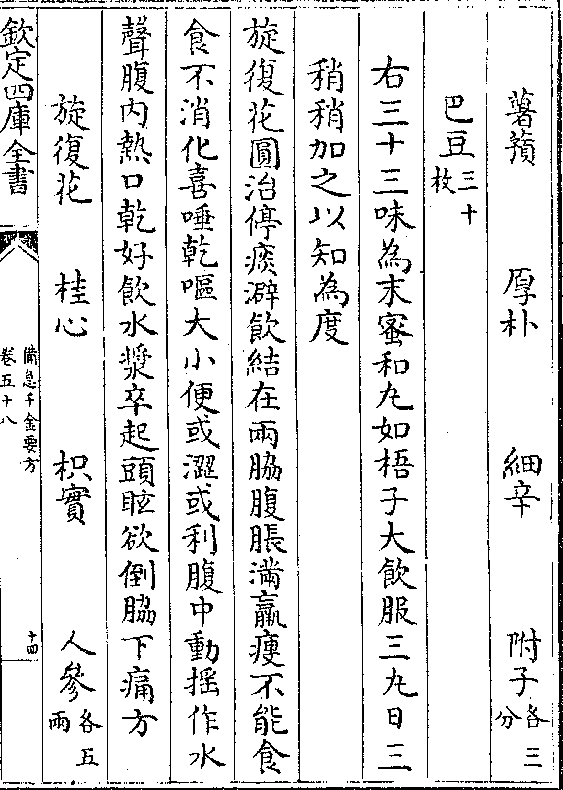 薯蕷　厚朴　細辛　附子各三分
巴豆三十枚
右三十三味為末蜜和丸如梧子大飲服三丸日三
稍稍加之以知為度
旋復花圓治停痰澼飲結在兩脇腹脹滿羸瘦不能食
食不消化喜唾乾嘔大小便或澀或利腹中動摇作水
聲腹内熱口乾好飲水漿卒起頭眩欲倒脇下痛方
旋復花　桂心　枳實　人參各五兩
欽定四庫全書
備急千金要方
卷五十八
十四